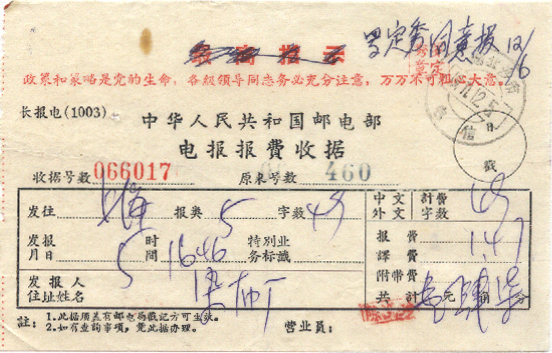 最高指示
政策和策略是党的生命，各級领导同志务必充分注意，万万不可粗心大意。
长报电(1003)
中华人民共和国邮电部
电报报費收据
收据号数 066017 原来号数 460
发往 上海 报类 5 字数 49
中文 計費
外文 字数 49
发报 时
月日 5 間 1646
特別业
务标識
报費 1.47
譯費
附带費
发报人
住址姓名
共計 壹元肆角柒分
日
戳
註：1.此据須盖有邮电局戳記方可生效。
2.如有查詢事項，凭此据办理。
营业員：